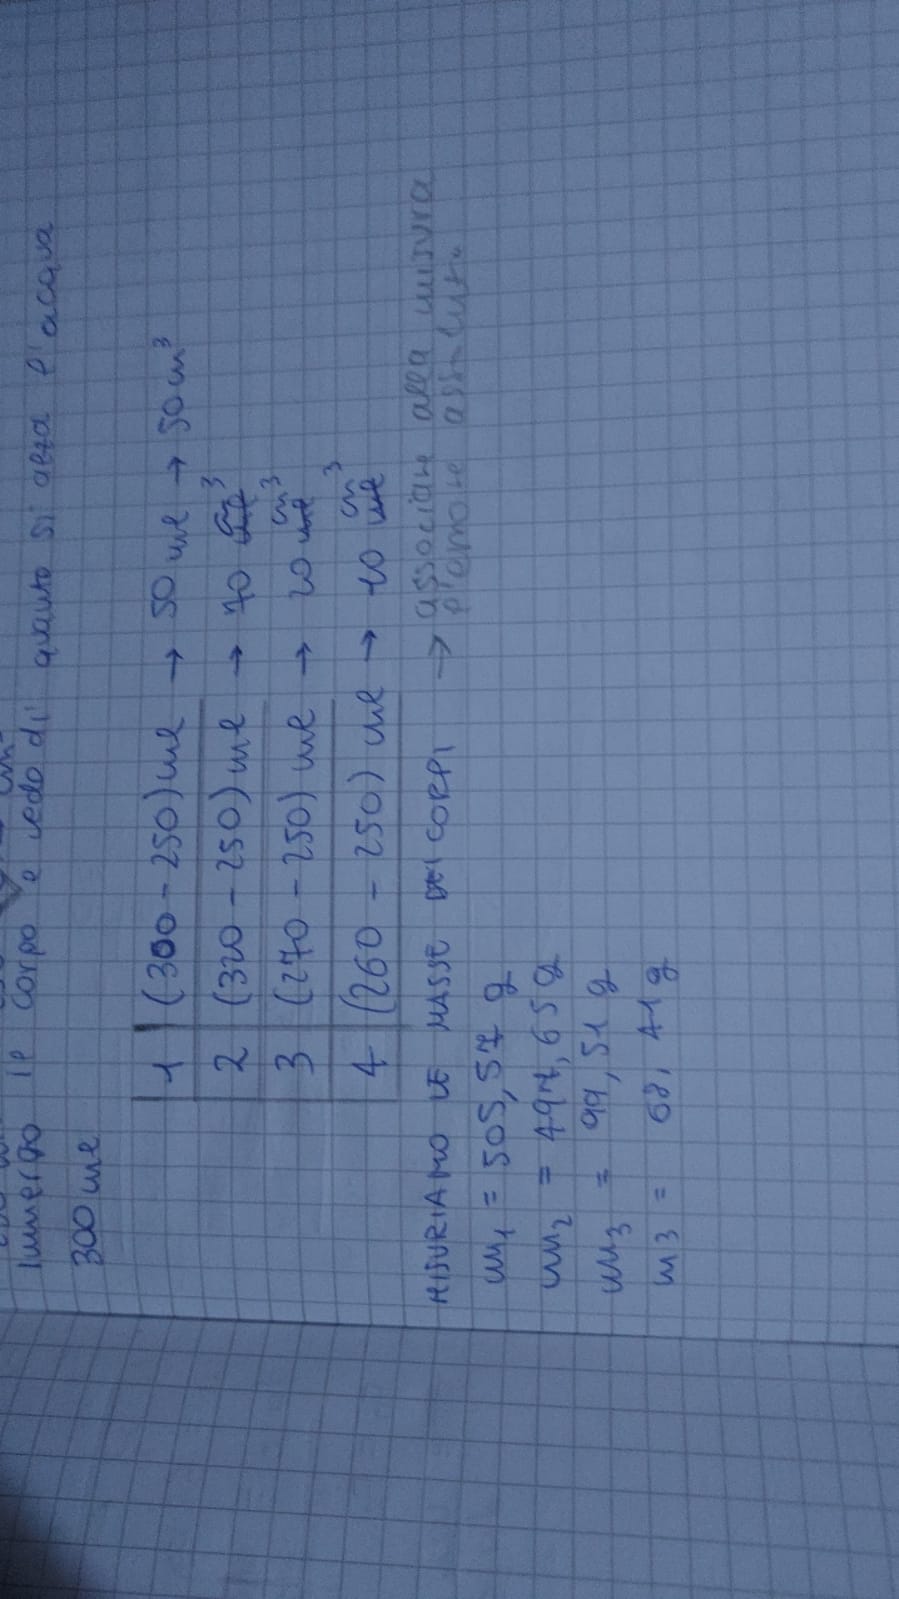 Immergo il corpo e vedo di quanto si alza l'acqua
300 ml
1 (300 - 250) ml → 50 ml → 50 cm³
2 (320 - 250) ml → 70 cm³
3 (270 - 250) ml → 20 cm³
4 (260 - 250) ml → 10 cm³
MISURIAMO LE MASSE DEI CORPI → associare alla misura
l'errore assoluto
m₁ = 505,57 g
m₂ = 497,65 g
m₃ = 99,51 g
m3 = 68,41 g